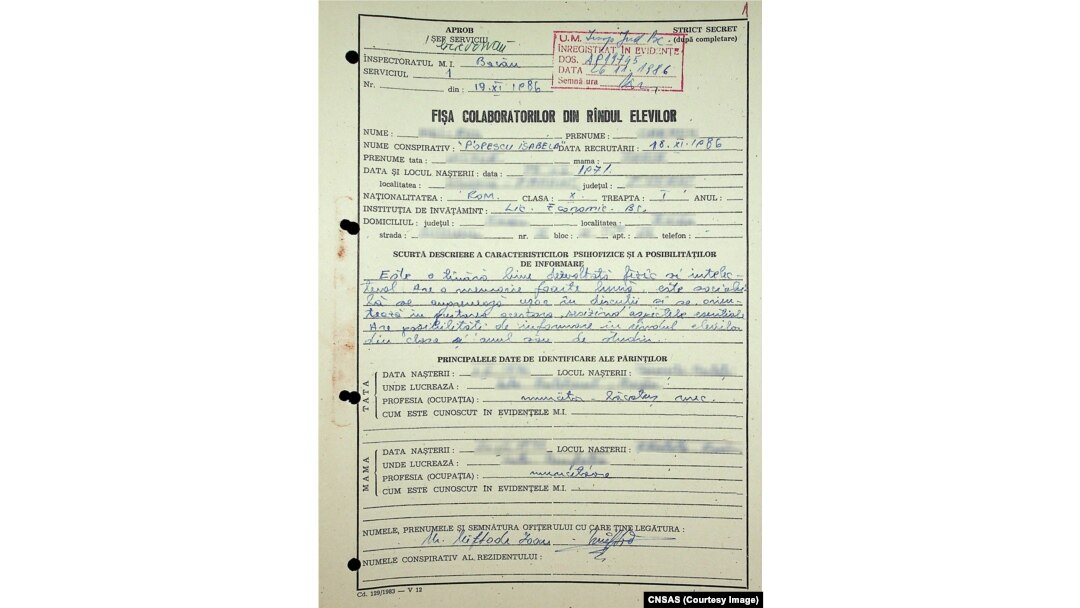 1
APROB
STRICT SECRET
ȘEF SERVICIU
(după completare)
U.M.
ÎNREGISTRAT ÎN EVIDENȚE
DOS.
DATA 26 11. 1986
Semnătura
INSPECTORATUL M.I. Bacău
SERVICIUL 1
Nr. din: 19.XI 1986
FIȘA COLABORATORILOR DIN RÎNDUL ELEVILOR
NUME: PRENUME:
NUME CONSPIRATIV: "POPESCU ISABELA" DATA RECRUTĂRII: 18.XI.1986
PRENUME tata: mama:
DATA ȘI LOCUL NAȘTERII: data: 1971.
localitatea: județul:
NAȚIONALITATEA: Rom. CLASA: X TREAPTA: I ANUL:
INSTITUȚIA DE ÎNVĂȚĂMÎNT: Lic. Economic. Bc.
DOMICILIUL: județul: localitatea:
strada: nr. bloc: apt.: telefon:
SCURTĂ DESCRIERE A CARACTERISTICILOR PSIHOFIZICE ȘI A POSIBILITĂȚILOR
DE INFORMARE
Este o tînără bine dezvoltată fizic și intelec-
tual. Are o memorie foarte bună, este sociabi-
lă se antrenează ușor în discuții și se orien-
tează în purtarea acestora, sesizînd aspectele esențiale
Are posibilități de informare în rîndul elevilor
din clasa și anul său de studiu.
PRINCIPALELE DATE DE IDENTIFICARE ALE PĂRINȚILOR
TATA
DATA NAȘTERII: LOCUL NAȘTERII:
UNDE LUCREAZĂ:
PROFESIA (OCUPAȚIA): muncitor - lăcătuș mec.
CUM ESTE CUNOSCUT ÎN EVIDENȚELE M.I.
MAMA
DATA NAȘTERII: LOCUL NAȘTERII:
UNDE LUCREAZĂ:
PROFESIA (OCUPAȚIA): muncitoare
CUM ESTE CUNOSCUT ÎN EVIDENȚELE M.I.
NUMELE, PRENUMELE ȘI SEMNĂTURA OFIȚERULUI CU CARE ȚINE LEGĂTURA:
Miftode Ioan
NUMELE CONSPIRATIV AL REZIDENTULUI:
Cd. 129/1983 — V 12
CNSAS (Courtesy Image)